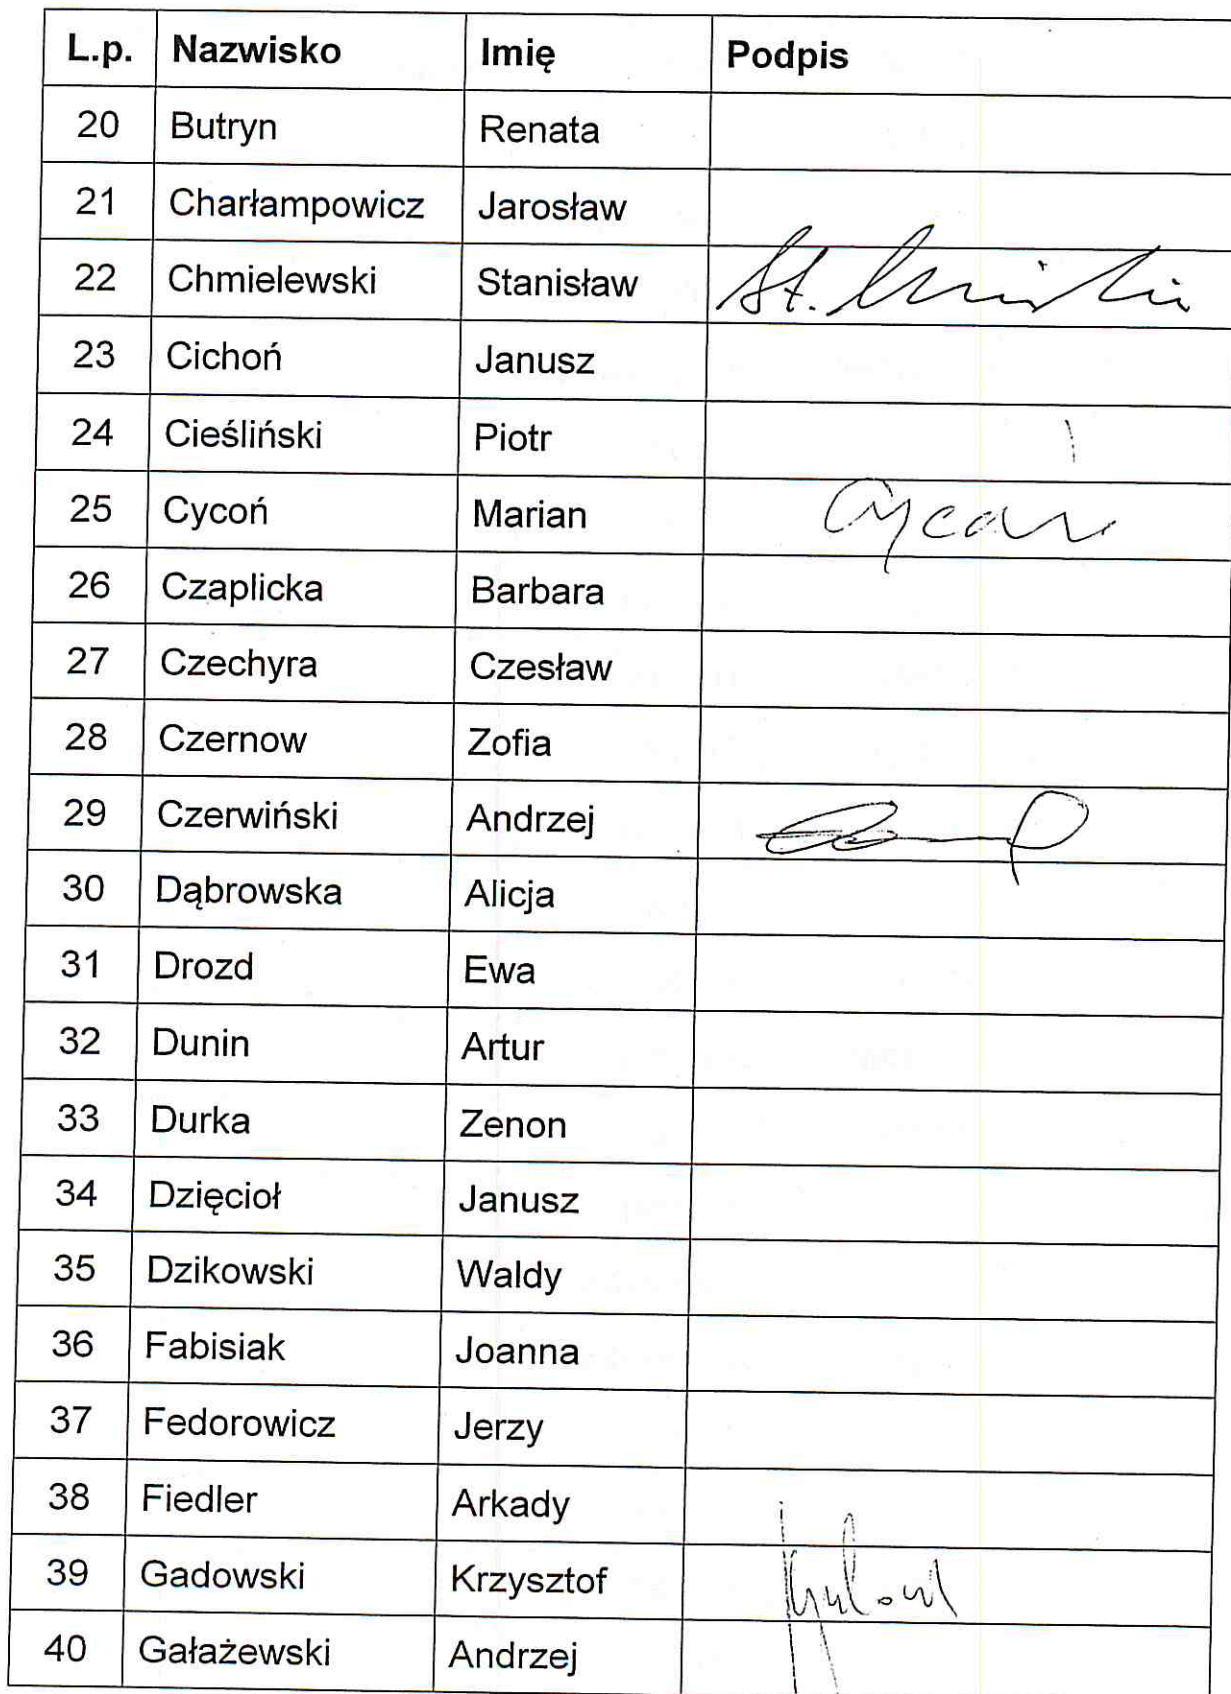 L.p. Nazwisko Imię Podpis
20 Butryn Renata
21 Charłampowicz Jarosław
22 Chmielewski Stanisław St.
23 Cichoń Janusz
24 Cieśliński Piotr
25 Cycoń Marian Cycoń
26 Czaplicka Barbara
27 Czechyra Czesław
28 Czernow Zofia
29 Czerwiński Andrzej
30 Dąbrowska Alicja
31 Drozd Ewa
32 Dunin Artur
33 Durka Zenon
34 Dzięcioł Janusz
35 Dzikowski Waldy
36 Fabisiak Joanna
37 Fedorowicz Jerzy
38 Fiedler Arkady
39 Gadowski Krzysztof
40 Gałażewski Andrzej